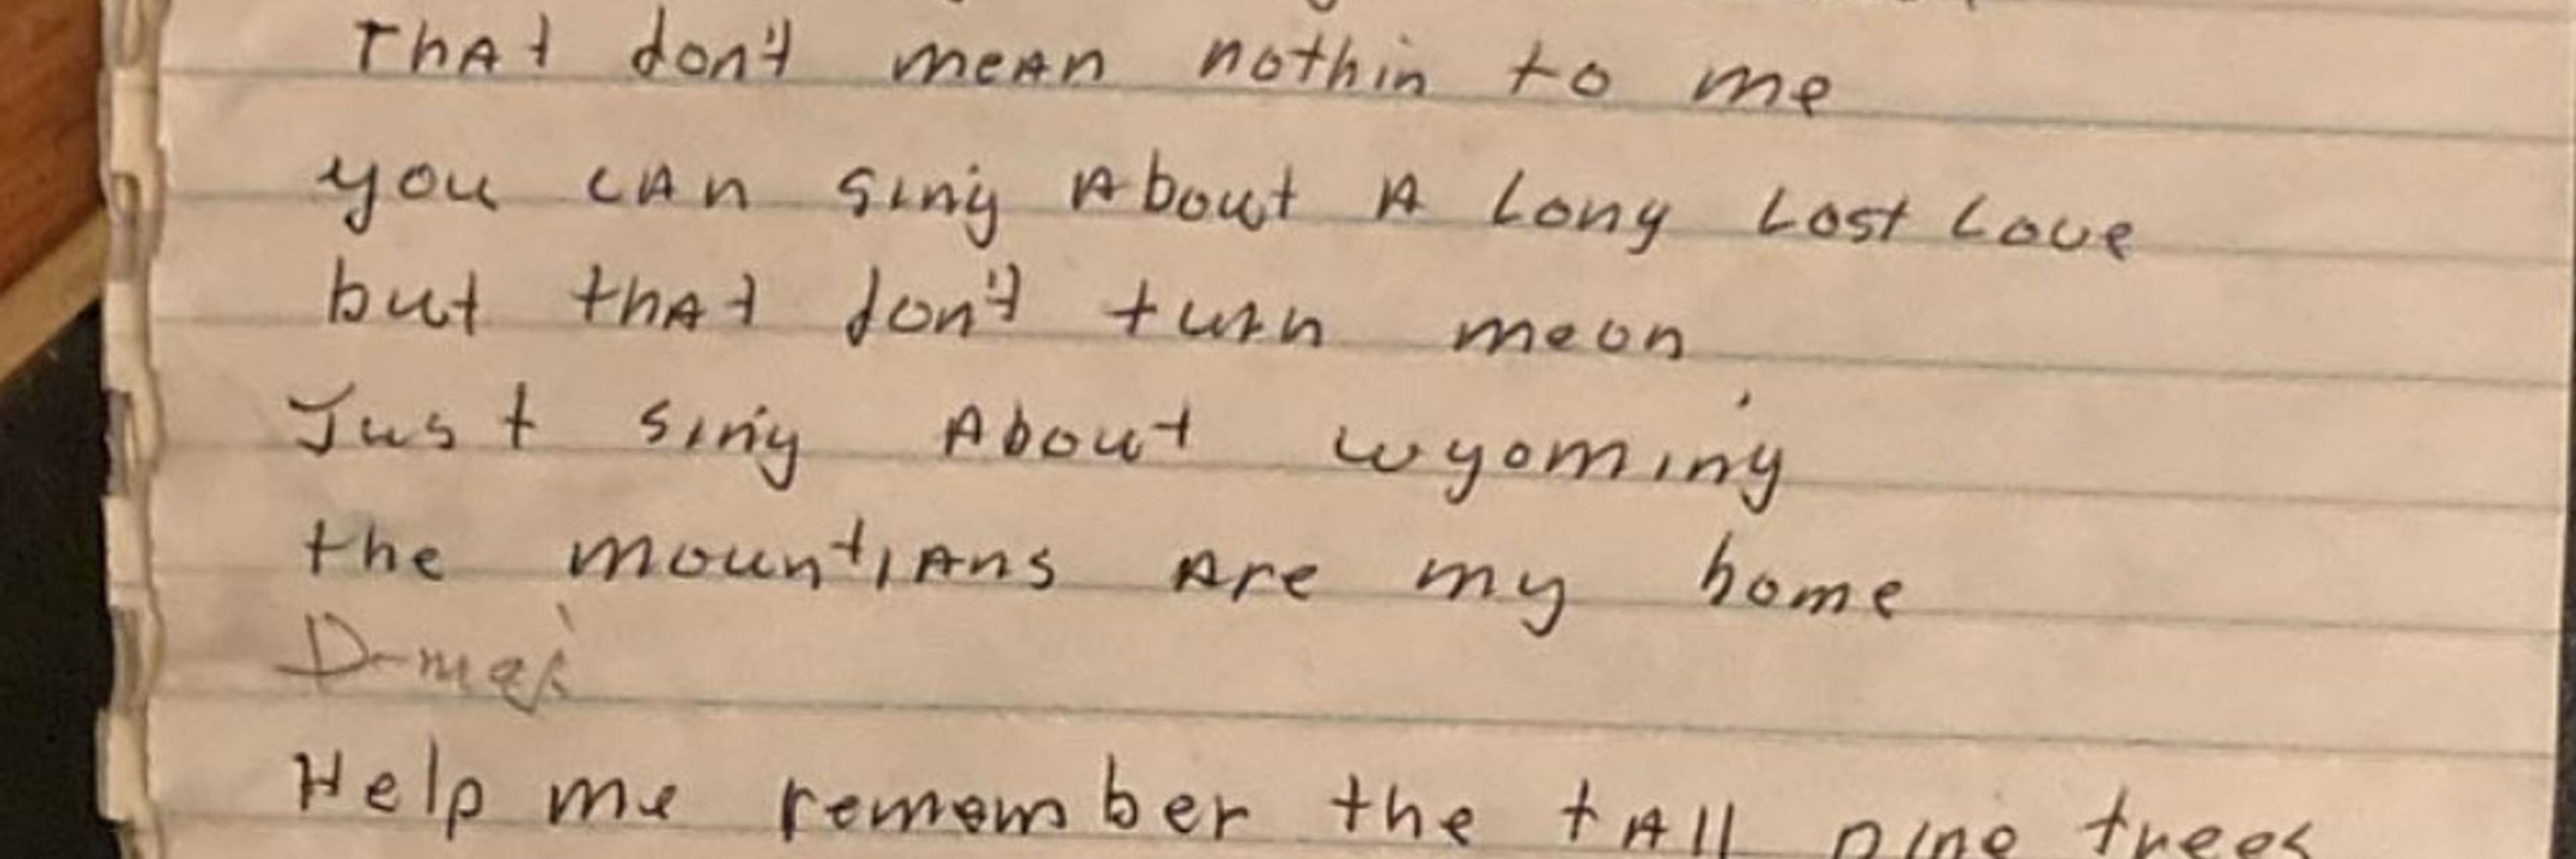 That don't mean nothin to me
you can sing About A Long Lost Love
but that don't turn meon
Just sing About wyoming
the mountians Are my home
Help me remember the tAll pine trees